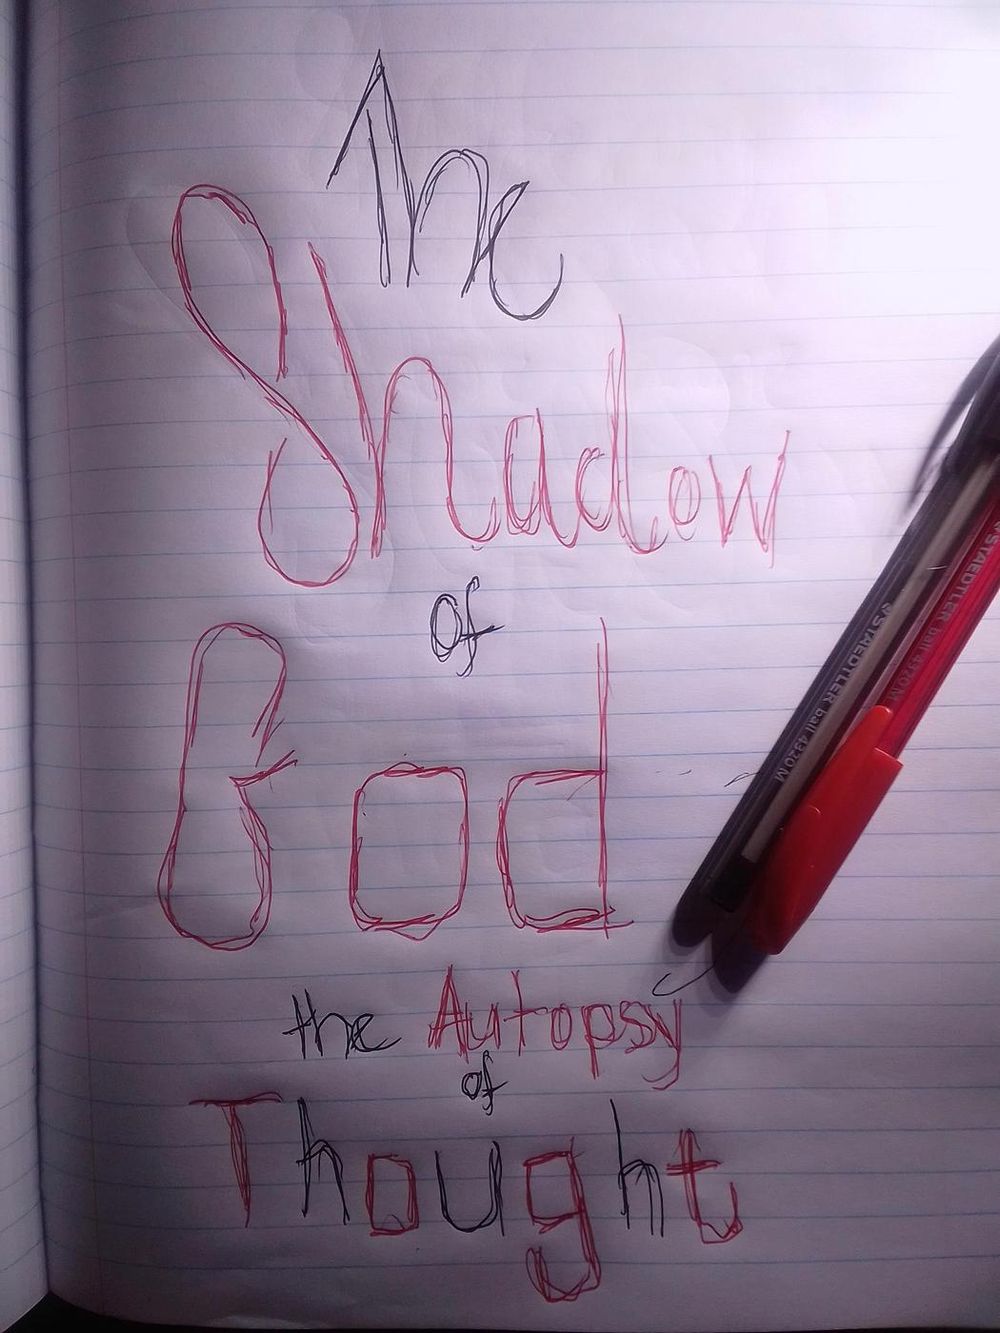 The
Shadow
of
God
the Autopsy
of
Thought
STAEDTLER ball 4320M
STAEDTLER ball 4320M